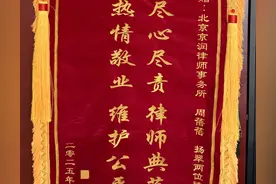 赠：北京京润律师事务所 周蓓蓓 扬翠两位
尽心尽责 律师典范
热情敬业 维护公平
二零二五年